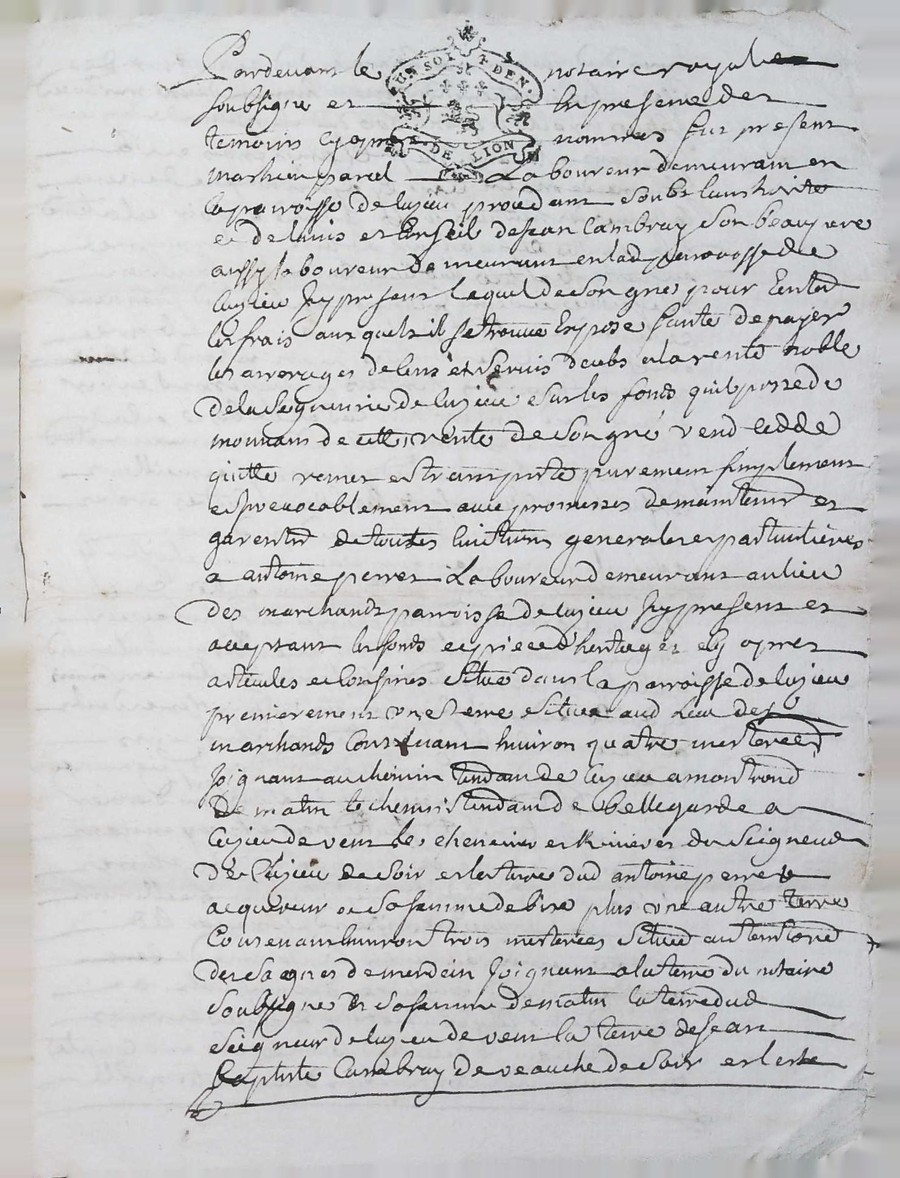 Pardevant le notaire royal
soubsigné et en presence des
temoins cy apres nommes fut present
mathieu Laboureur demeurant en
la parroisse de Cuzieu procedant soubs lauthorité
et de lavis et Conseil de Jean Cambray son beaupere
aussy laboureur demeurant en lad parroisse de
Cuzieu Icy present lequel de son gré pour
les frais auxquels il se trouve Expose faute de payer
les arrerages de Cens et Servis deubs a la rente noble
de la Seigneurie de Cuzieu Sur les fonds quil possede
mouvans de cette rente de Son gré vend cedde
quitte remet et transporte purement simplement
et Irrevocablement avec promesses de maintenir et
garentir de toutes evictions generales et particulieres
a antoine perret Laboureur demeurant au lieu
des marchands parroisse de Cuzieu Icy present et
acceptant les fonds et piece d'heritages cy apres
articulés et Confinés Situé dans la parroisse de Cuzieu
premierement une terre Située aud Lieu des
marchands Contenant environ quatre mesterées
Joignant au chemin tendant de Cuzieu a montrond
de matin le chemin tendant de bellegarde a
Cuzieu de vent les et Rivieres du Seigneur
De Cuzieu de Soir et la terre dud antoine perret
acquereur et Sa femme de bize plus une autre terre
Contenant environ trois mesterées Située au territoire
des Joignant a la terre du notaire
Soubsigné et Sa femme de matin la terre dud
Seigneur de Cuzieu de vent la terre de Jean
Baptiste Cambray de veauche de Soir et
UN SOL DEN
DE LION